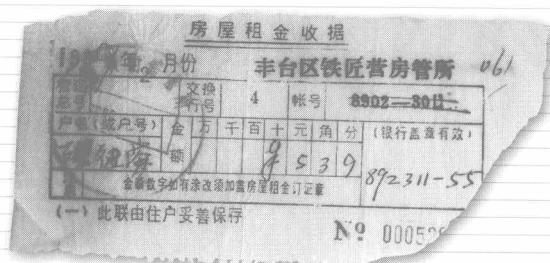 房屋租金收据
061
年2月份 丰台区铁匠营房管所
总号 交换行号 4 帐号 8902—301
户名(或户号) 金额 万 千 百 十 元 角 分 (银行盖章有效)
5 3 9
892311-55
金额数字如有涂改须加盖房屋租金订正章
(一)此联由住户妥善保存
№ 0005